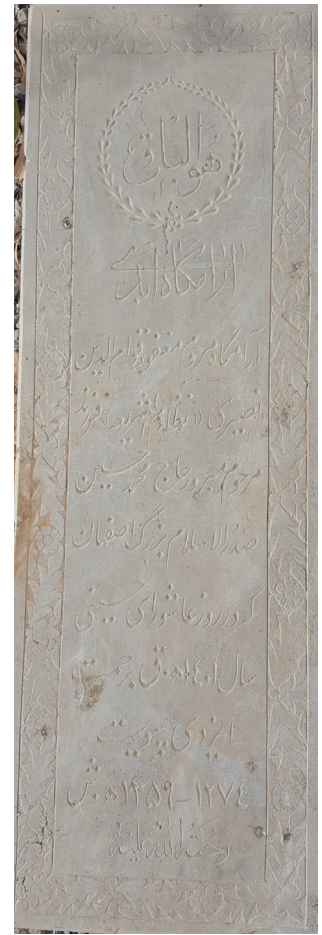 هو الباقی
آرامگاه ابدی
آرامگاه مرحوم مغفور قوام الدین
نصیری «نظام الشریعه» فرزند
مرحوم مبرور حاج محمد حسین
صدرالاسلام بزرگ اصفهان
که در روز عاشورای حسینی
سال ۱۴۰۱ ه.ق برحمت
ایزدی پیوست
۱۲۷۴-۱۳۵۹ ه.ش
رحمة الله علیه